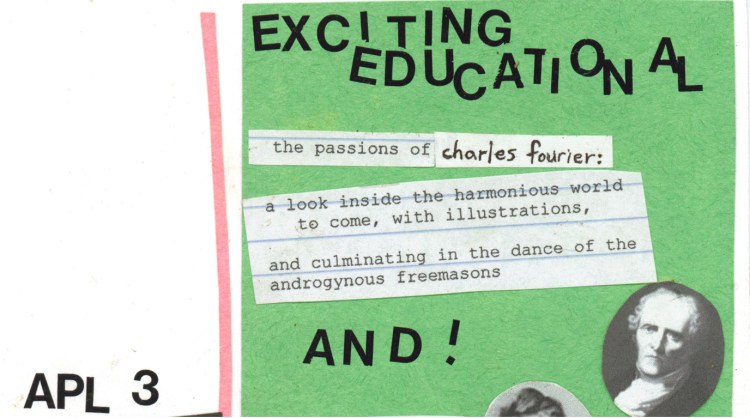 EXCITING
EDUCATIONAL
the passions of charles fourier:
a look inside the harmonious world
to come, with illustrations,
and culminating in the dance of the
androgynous freemasons
AND!
APL 3